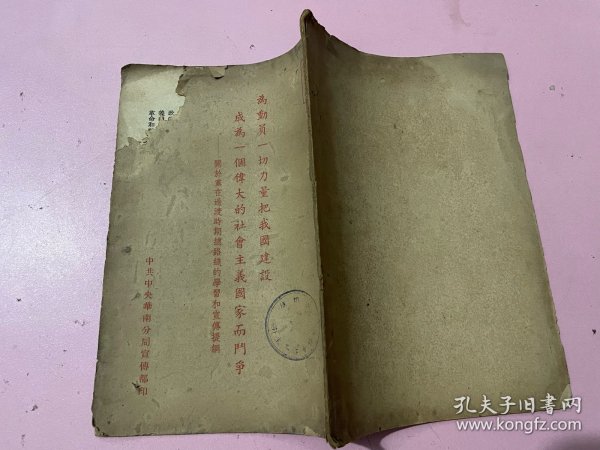 為動員一切力量把我國建設
成為一個偉大的社會主義國家而鬥爭
——關於黨在過渡時期總路綫的學習和宣傳提綱
中共中央華南分局宣傳部印
革命和
孔夫子旧书网
www.kongfz.com